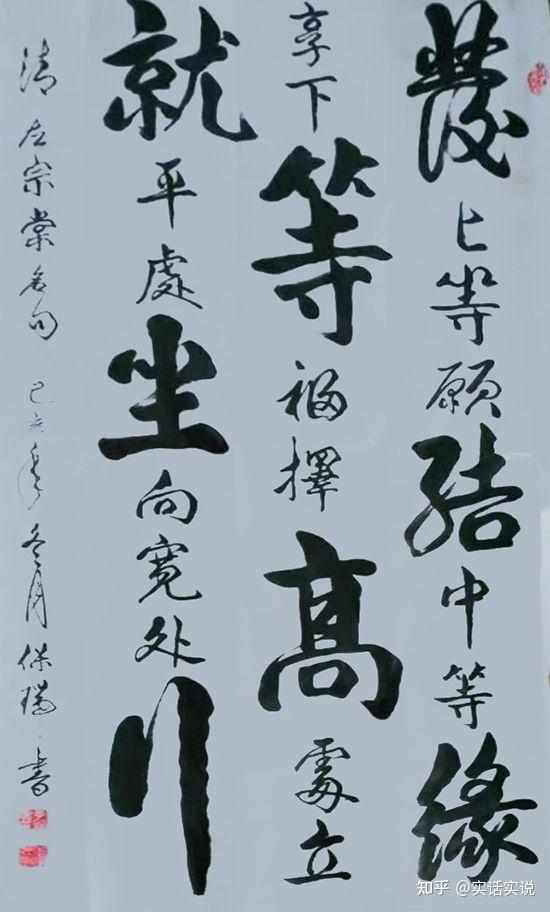 發上等願結中等緣
享下等福擇高處立
就平處坐向宽处行
清左宗棠名句 己亥年冬月保瑞书
知乎 @实话实说